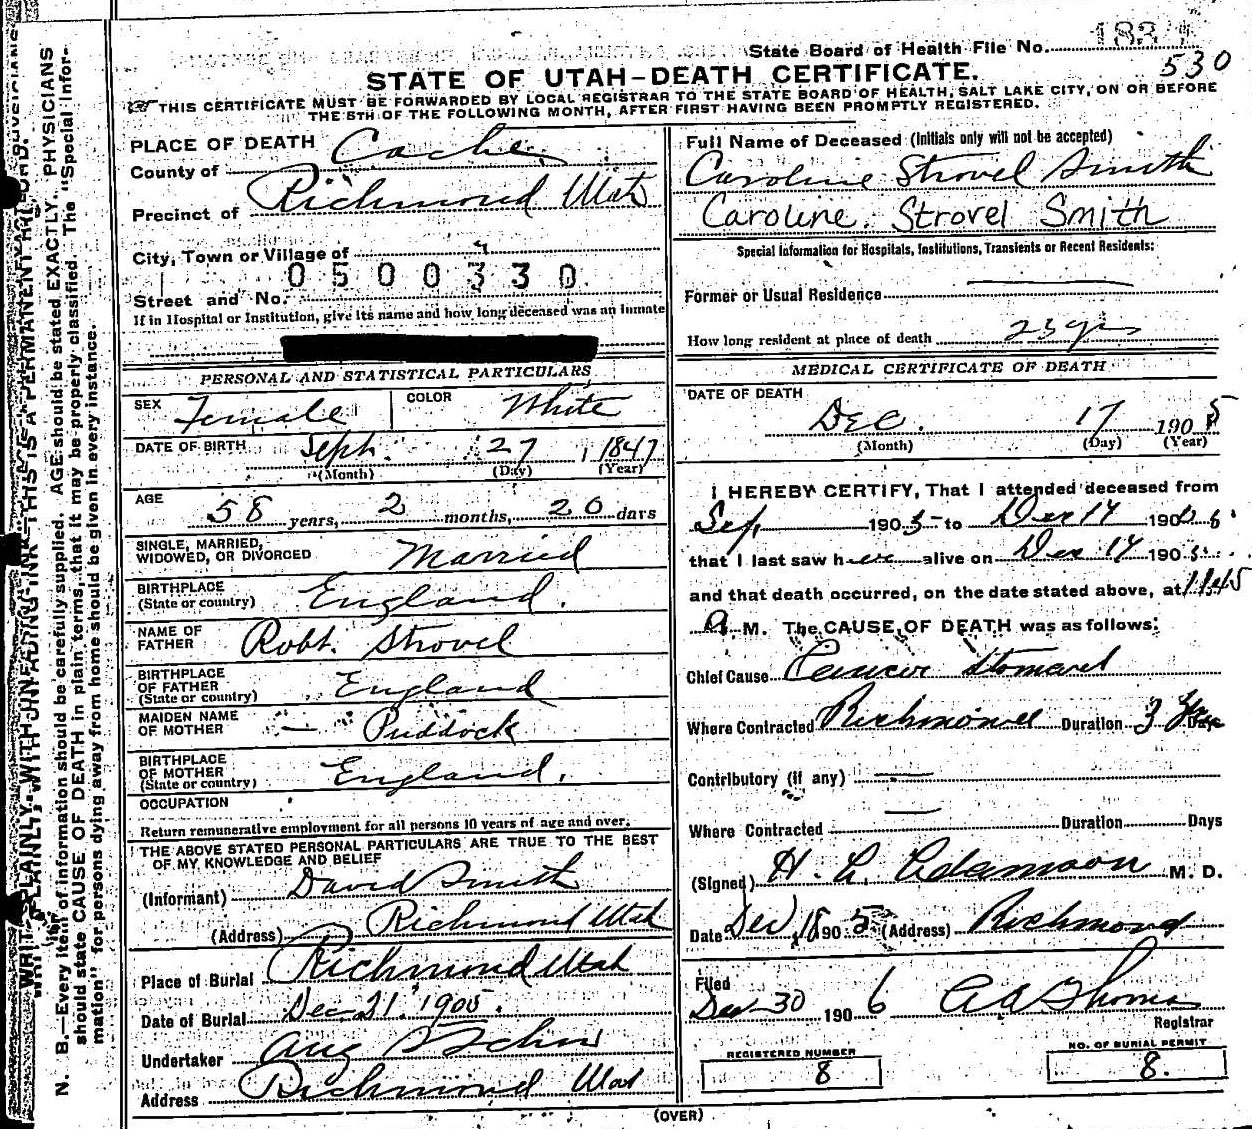 State Board of Health File No. 183
530
STATE OF UTAH—DEATH CERTIFICATE.
THIS CERTIFICATE MUST BE FORWARDED BY LOCAL REGISTRAR TO THE STATE BOARD OF HEALTH, SALT LAKE CITY, ON OR BEFORE
THE 5TH OF THE FOLLOWING MONTH, AFTER FIRST HAVING BEEN PROMPTLY REGISTERED.
PLACE OF DEATH
County of Cache
Precinct of Richmond Utah
City, Town or Village of
0500330
Street and No.
If in Hospital or Institution, give its name and how long deceased was an inmate
PERSONAL AND STATISTICAL PARTICULARS
SEX Female COLOR White
DATE OF BIRTH Seph. 27 1847
(Month) (Day) (Year)
AGE 58 years, 2 months, 20 days
SINGLE, MARRIED,
WIDOWED, OR DIVORCED Married
BIRTHPLACE
(State or country) England.
NAME OF
FATHER Robt. Strovel
BIRTHPLACE
OF FATHER
(State or country) England
MAIDEN NAME
OF MOTHER — Puddock
BIRTHPLACE
OF MOTHER
(State or country) England.
OCCUPATION
Return remunerative employment for all persons 10 years of age and over.
THE ABOVE STATED PERSONAL PARTICULARS ARE TRUE TO THE BEST
OF MY KNOWLEDGE AND BELIEF
(Informant) David Smith
(Address) Richmond Utah
Place of Burial Richmond Utah
Date of Burial Dec 21 1905.
Undertaker Aug
Address Richmond Utah
(OVER)
Full Name of Deceased (Initials only will not be accepted)
Caroline Strovel Smith
Caroline Strovel Smith
Special Information for Hospitals, Institutions, Transients or Recent Residents:
Former or Usual Residence
How long resident at place of death 23 yrs
MEDICAL CERTIFICATE OF DEATH
DATE OF DEATH
Dec. 17 1905
(Month) (Day) (Year)
I HEREBY CERTIFY, That I attended deceased from
Sep 1905 to Dec 17 190
that I last saw her alive on Dec 17 1905
and that death occurred, on the date stated above, at 11.45
a M. The CAUSE OF DEATH was as follows:
Chief Cause Cancer Stomach
Where Contracted Richmond Duration 3 Yrs
Contributory (if any) —
Where Contracted — Duration Days
(Signed) H. C. Adamson M. D.
Date Dec 18 1905 (Address) Richmond
Filed
Dec 30 1906 Thomas
Registrar
REGISTERED NUMBER
8
NO. OF BURIAL PERMIT
8.
WRITE PLAINLY, WITH UNFADING INK—THIS IS A PERMANENT RECORD.
N. B.—Every item of information should be carefully supplied. AGE should be stated EXACTLY. PHYSICIANS
should state CAUSE OF DEATH in plain terms, that it may be properly classified. The "Special Infor-
mation" for persons dying away from home should be given in every instance.